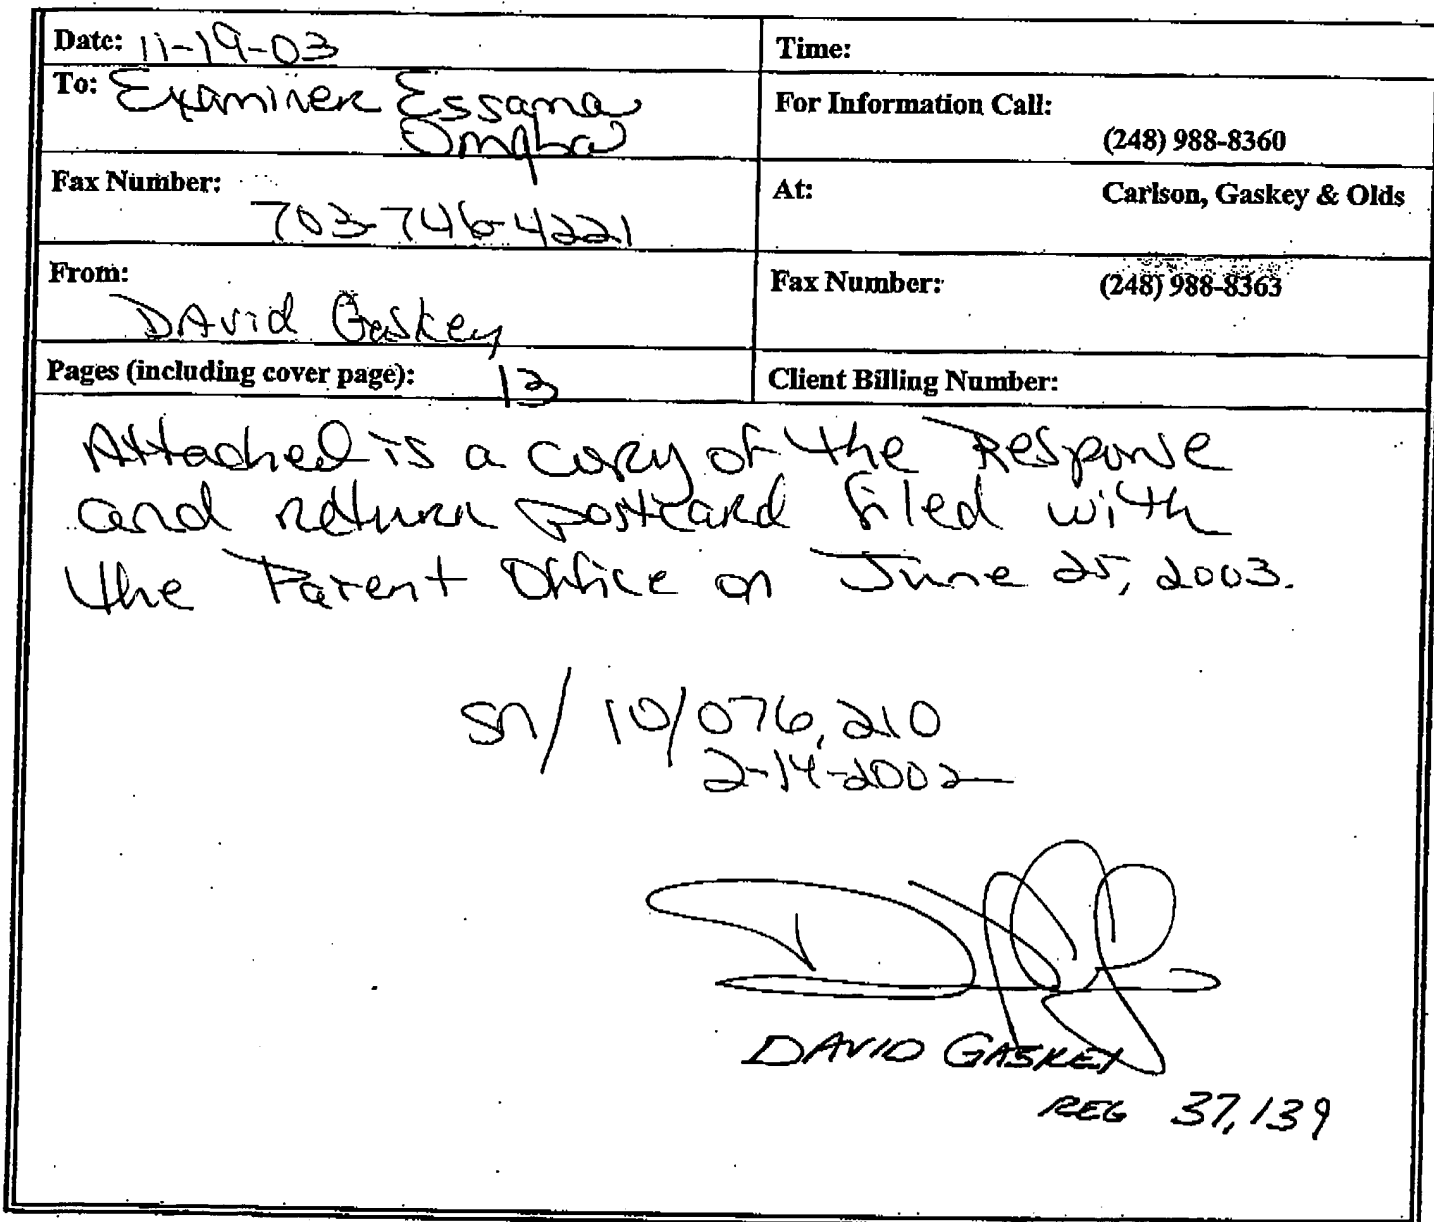 Date: 11-19-03
Time:
To: Examiner Essama
Omgba
For Information Call:
(248) 988-8360
Fax Number:
703-746-4221
At: Carlson, Gaskey & Olds
From:
David Gaskey
Fax Number: (248) 988-8363
Pages (including cover page): 13
Client Billing Number:
Attached is a copy of the Response
and return postcard filed with
the Patent Office on June 25, 2003.
SN/ 10/076,210
2-14-2002
DAVID GASKEY
REG 37,139